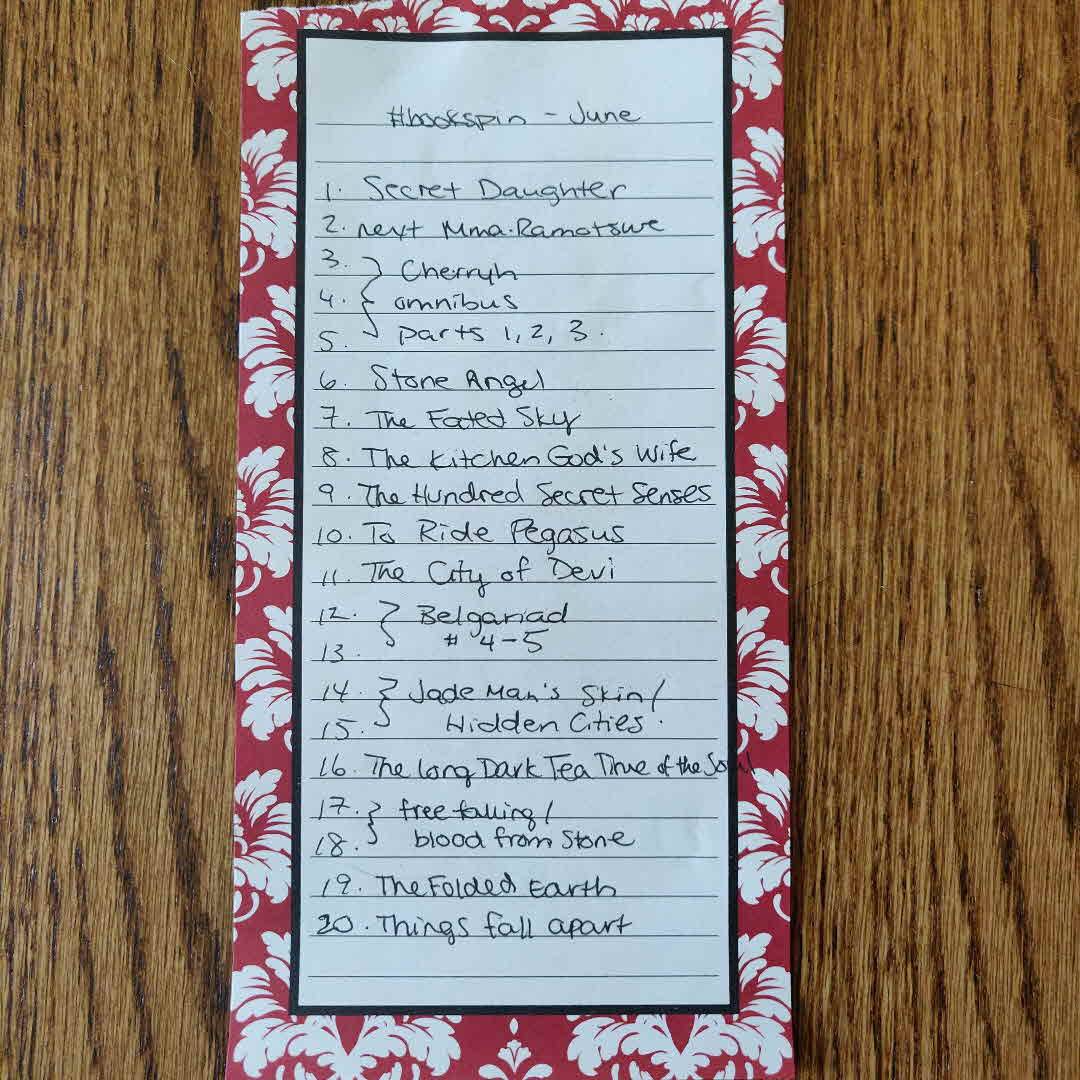 #bookspin - June
1. Secret Daughter
2. next Mma. Ramotswe
3. } Cherryh
4. omnibus
5. parts 1, 2, 3.
6. Stone Angel
7. The Fated Sky
8. The Kitchen God's Wife
9. The Hundred Secret Senses
10. To Ride Pegasus
11. The City of Devi
12. } Belgariad
# 4-5
13.
14. } Jade Man's Skin/
15. Hidden Cities.
16. The Long Dark Tea Time of the Soul
17. } free falling/
18. blood from Stone
19. The Folded Earth
20. Things fall apart